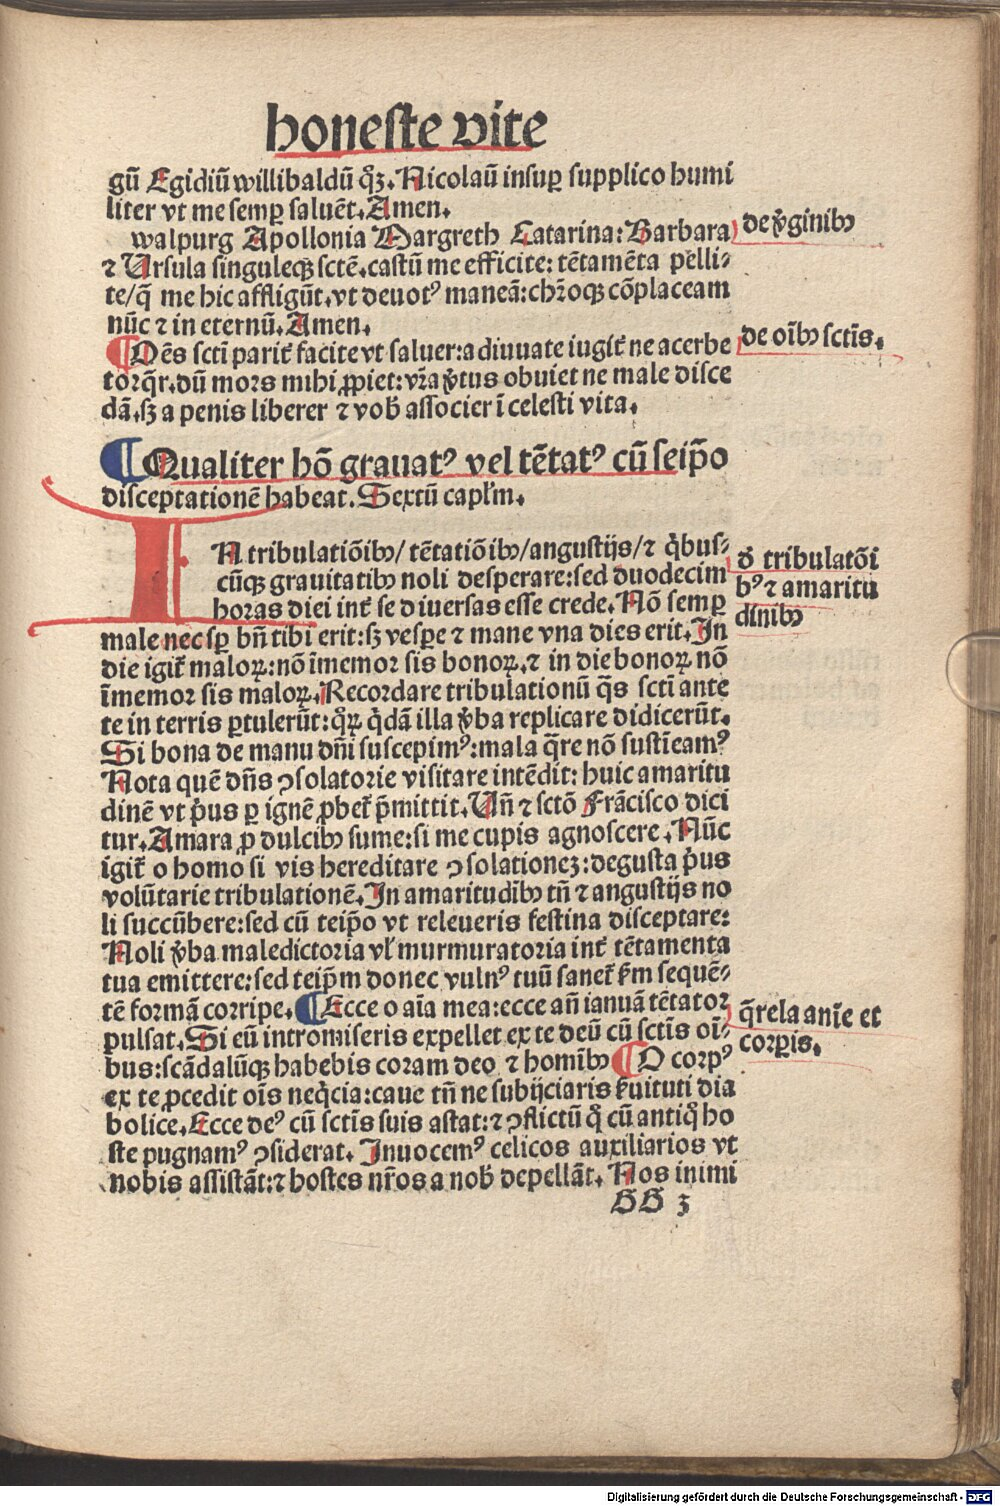 honeste vite
gū Egidiū willibaldū qȝ. Nicolaū insuꝑ supplico humi
liter vt me semꝑ saluēt. Amen.
walpurg Apollonia Margreth Catarina: Barbara
de v̾ginibꝰ
⁊ Ursula singuleqꝫ sctē. castū me efficite: tētamēta pelli⸗
te/q̄ me hic affligūt. vt deuotꝰ maneā: chr̄oqꝫ cōplaceam
nūc ⁊ in eternū. Amen.
¶ Oēs scti parit̄ facite vt saluer: adiuuate iugit̄ ne acerbe
de oībꝰ sctīs.
torq̄r. dū mors mihi ꝓpiet: vr̄a v̾tus obuiet ne male disce
dā. sꝫ a penis liberer ⁊ vob̄ associer ī celesti vita.
¶ Qualiter hō grauatꝰ vel tētatꝰ cū seip̄o
disceptationē habeat. Sextū caplm̄.
IN tribulatiōibꝰ/ tētatiōibꝰ/ angustijs/ ⁊ qͥbus⸗
cūqꝫ grauitatibꝰ noli desperare: sed duodecim
horas diei int̄ se diuersas esse crede. Nō semꝑ
đ tribulatōi
bꝰ ⁊ amaritu
dinibꝰ
male nec sꝑ bn̄ tibi erit: sꝫ vesꝑe ⁊ mane vna dies erit. In
die igit̄ maloꝝ: nō īmemor sis bonoꝝ. ⁊ in die bonoꝝ nō
īmemor sis maloꝝ. Recordare tribulationū q̄s scti ante
te in terris ꝑtulerūt: qͦꝝ qͥdā illa v̾ba replicare didicerūt.
Si bona de manu dn̄i suscepimꝰ: mala q̄re nō sustīeamꝰ
Nota quē dn̄s ꝯsolatorie visitare intēdit: huic amaritu
dinē vt pͥus ꝑ ignē ꝓbet̄ p̄mittit. Un̄ ⁊ sctō Frācisco dici
tur. Amara ꝓ dulcibꝰ sume: si me cupis agnoscere. Nūc
igit̄ o homo si vis hereditare ꝯsolationeꝫ: degusta pͥus
volūtarie tribulationē. In amaritudībꝰ tn̄ ⁊ angustijs no
li succūbere: sed cū teip̄o vt releueris festina disceptare:
Noli v̾ba maledictoria vl̄ murmuratoria int̄ tētamenta
tua emittere: sed teip̄m donec vulnꝰ tuū sanet̄ ẜm sequē⸗
tē formā corripe. ¶ Ecce o aīa mea: ecce an̄ ianuā tētator
q̄rela anīe et
corꝑis.
pulsat. Si eū intromiseris expellet ex te deū cū sctīs oī⸗
bus: scādalūqꝫ habebis coram deo ⁊ homībꝰ ¶ O corpꝰ
ex te ꝓcedit oīs neqͥcia: caue tn̄ ne subijciaris ẜuituti dia
bolice. Ecce deꝰ cū sctīs suis astat: ⁊ ꝯflictū qͦ cū antiqͦ ho
ste pugnamꝰ ꝯsiderat. Inuocemꝰ celicos auxiliarios vt
nobis assistāt: ⁊ hostes nr̄os a nob̄ depellāt. Nos inimi
HH 3
Digitalisierung gefördert durch die Deutsche Forschungsgemeinschaft - DFG